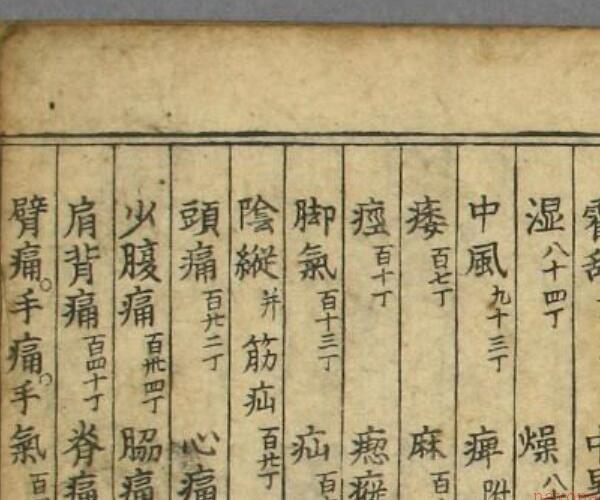 湿 八十四丁 燥 八
中風 九十三丁 痺 附
痿 百七丁 麻 百
痙 百十丁
脚氣 百十三丁 疝 百十
陰縱 并 筋疝 百廿丁
頭痛 百廿二丁 心痛
少腹痛 百卅四丁 脇痛
肩背痛 百四十丁 脊痛
臂痛。手痛。手氣 百